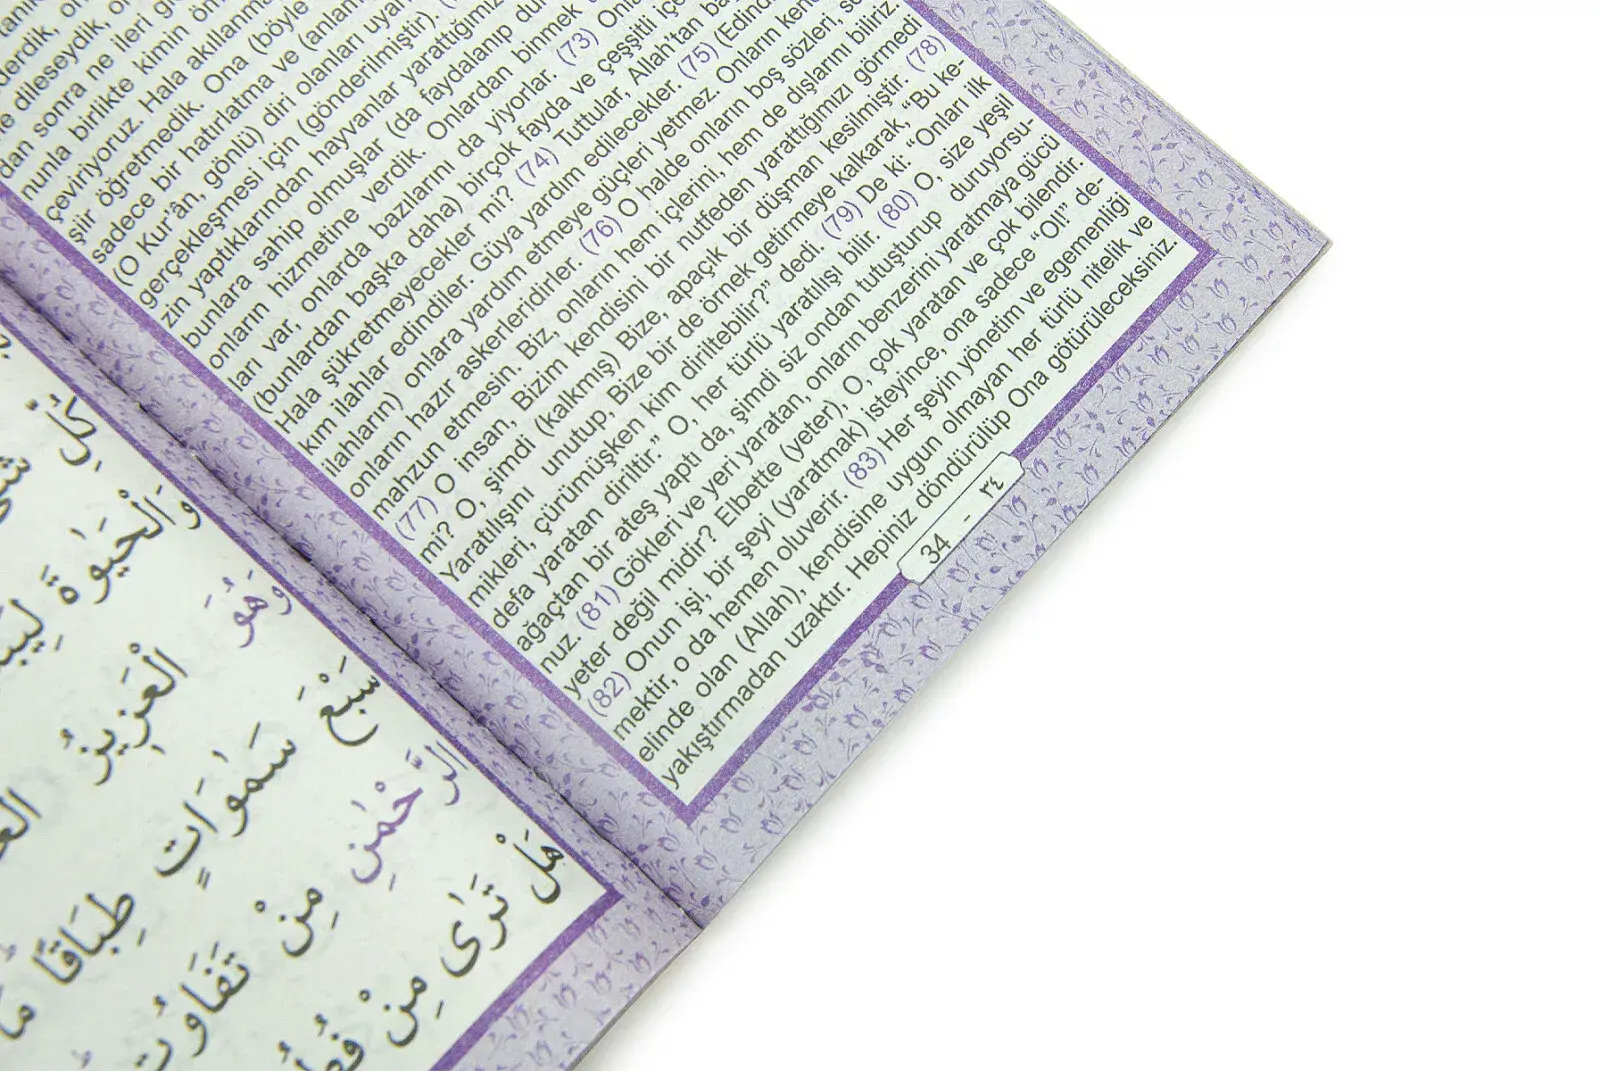 dileseydik,
sonra ne ileri
nunla birlikte kimin
çeviriyoruz. Hala
şiir öğretmedik. Ona (böyle
sadece bir hatırlatma ve
(O Kur'ân, gönlü) diri olanları
gerçekleşmesi için (gönderilmiştir).
zin yaptıklarından hayvanlar
bunlara sahip olmuşlar (da faydalanıp
onların hizmetine verdik. Onlardan binmek
ları var, onlarda bazılarını da yiyorlar. (73)
(bunlardan başka daha) birçok fayda ve çeşşitli
Hala şükretmeyecekler mi? (74) Tuttular, Allah'tan
kım ilahlar edindiler. Güya yardım edilecekler. (75)
ilahların) onlara yardım etmeye güçleri yetmez. Onların
onların hazır askerleridirler. (76) O halde onların boş sözleri,
mahzun etmesin. Biz, onların hem içlerini, hem de dışlarını biliriz
(77) O insan, Bizim kendisini bir nutfeden yarattığımızı görmedi
mi? O, şimdi (kalkmış) Bize, apaçık bir düşman kesilmiştir. (78)
Yaratılışını unutup, Bize bir de örnek getirmeye kalkarak, “Bu ke-
mikleri, çürümüşken kim diriltebilir?” dedi. (79) De ki: “Onları ilk
defa yaratan diriltir.” O, her türlü yaratılışı bilir. (80) O, size yeşil
ağaçtan bir ateş yaptı da, şimdi siz ondan tutuşturup duruyorsu-
nuz. (81) Gökleri ve yeri yaratan, onların benzerini yaratmaya gücü
yeter değil midir? Elbette (yeter), O, çok yaratan ve çok bilendir.
(82) Onun işi, bir şeyi (yaratmak) isteyince, ona sadece “Ol!” de-
mektir, o da hemen oluverir. (83) Her şeyin yönetim ve egemenliği
elinde olan (Allah), kendisine uygun olmayan her türlü nitelik ve
yakıştırmadan uzaktır. Hepiniz döndürülüp Ona götürüleceksiniz.
34 - ٣٤
كُلِّ
وَالْحَيٰوةَ
وَهُوَ الْعَزِيزُ
سَبْعَ سَمٰوَاتٍ طِبَاقًا مَا
الرَّحْمٰنِ مِنْ تَفَاوُتٍ
هَلْ تَرٰى مِنْ